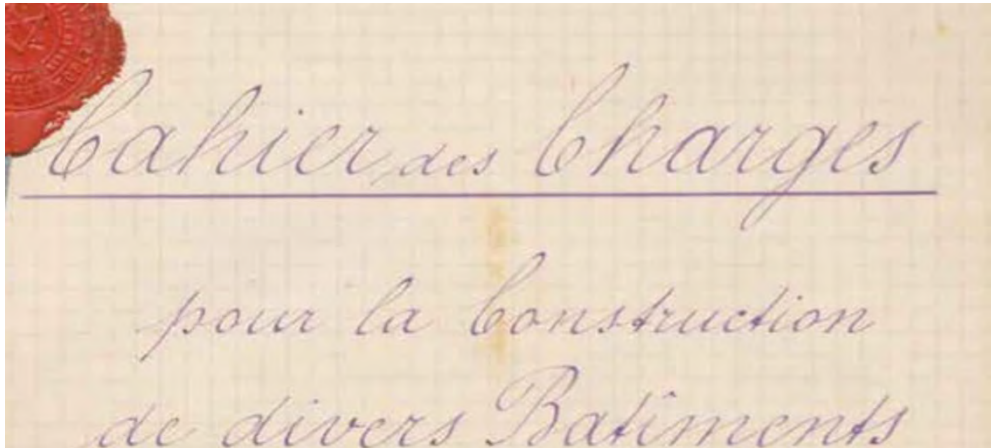 Cahier des Charges
pour la Construction
de divers Batiments